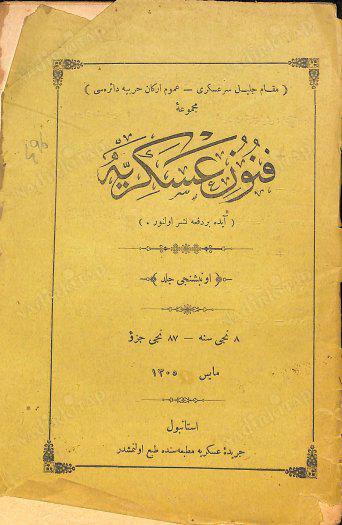 ( مقام جليل سرعسكرى — عموم اركان حربيه دائره‌سى )
مجموعهٔ
فنون عسكريه
( آيده بر دفعه نشر اولنور . )
اونبشنجى جلد
٨ نجى سنه — ٨٧ نجى جزؤ
مايس ١٣٠٥
استانبول
جريدهٔ عسكريه مطبعه‌سنده طبع اولنمشدر